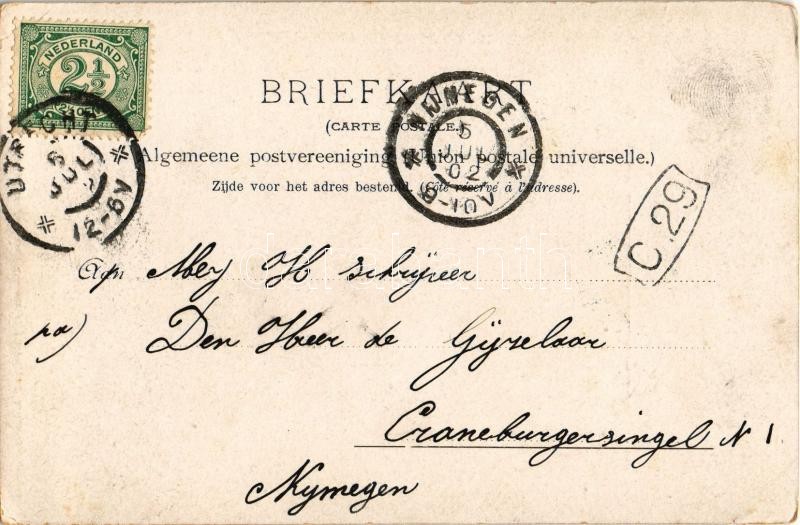 NEDERLAND
2½
BRIEFKAART
(CARTE POSTALE.)
(Algemeene postvereeniging (Union postale universelle.)
Zijde voor het adres bestemd. (Côté réservé à l'adresse).
UTRECHT
5 JUL
12-6V
NIJMEGEN
5
JUL
02
8-10V
C.29
Aan Mej H Schrijver
pa) Den Heer de Gijselaar
Craneburgersingel N 1
Nymegen